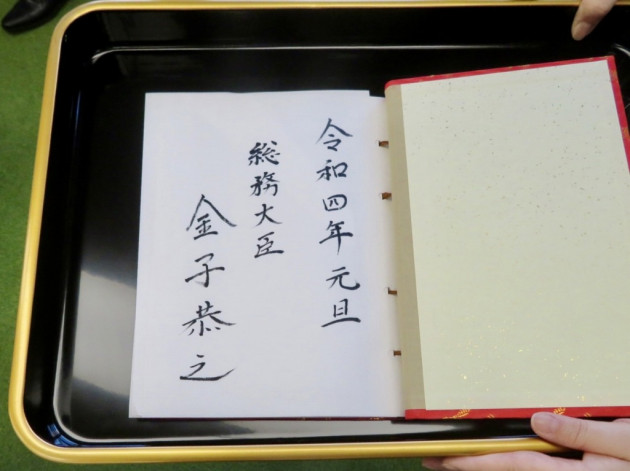 令和四年元旦
総務大臣
金子恭之